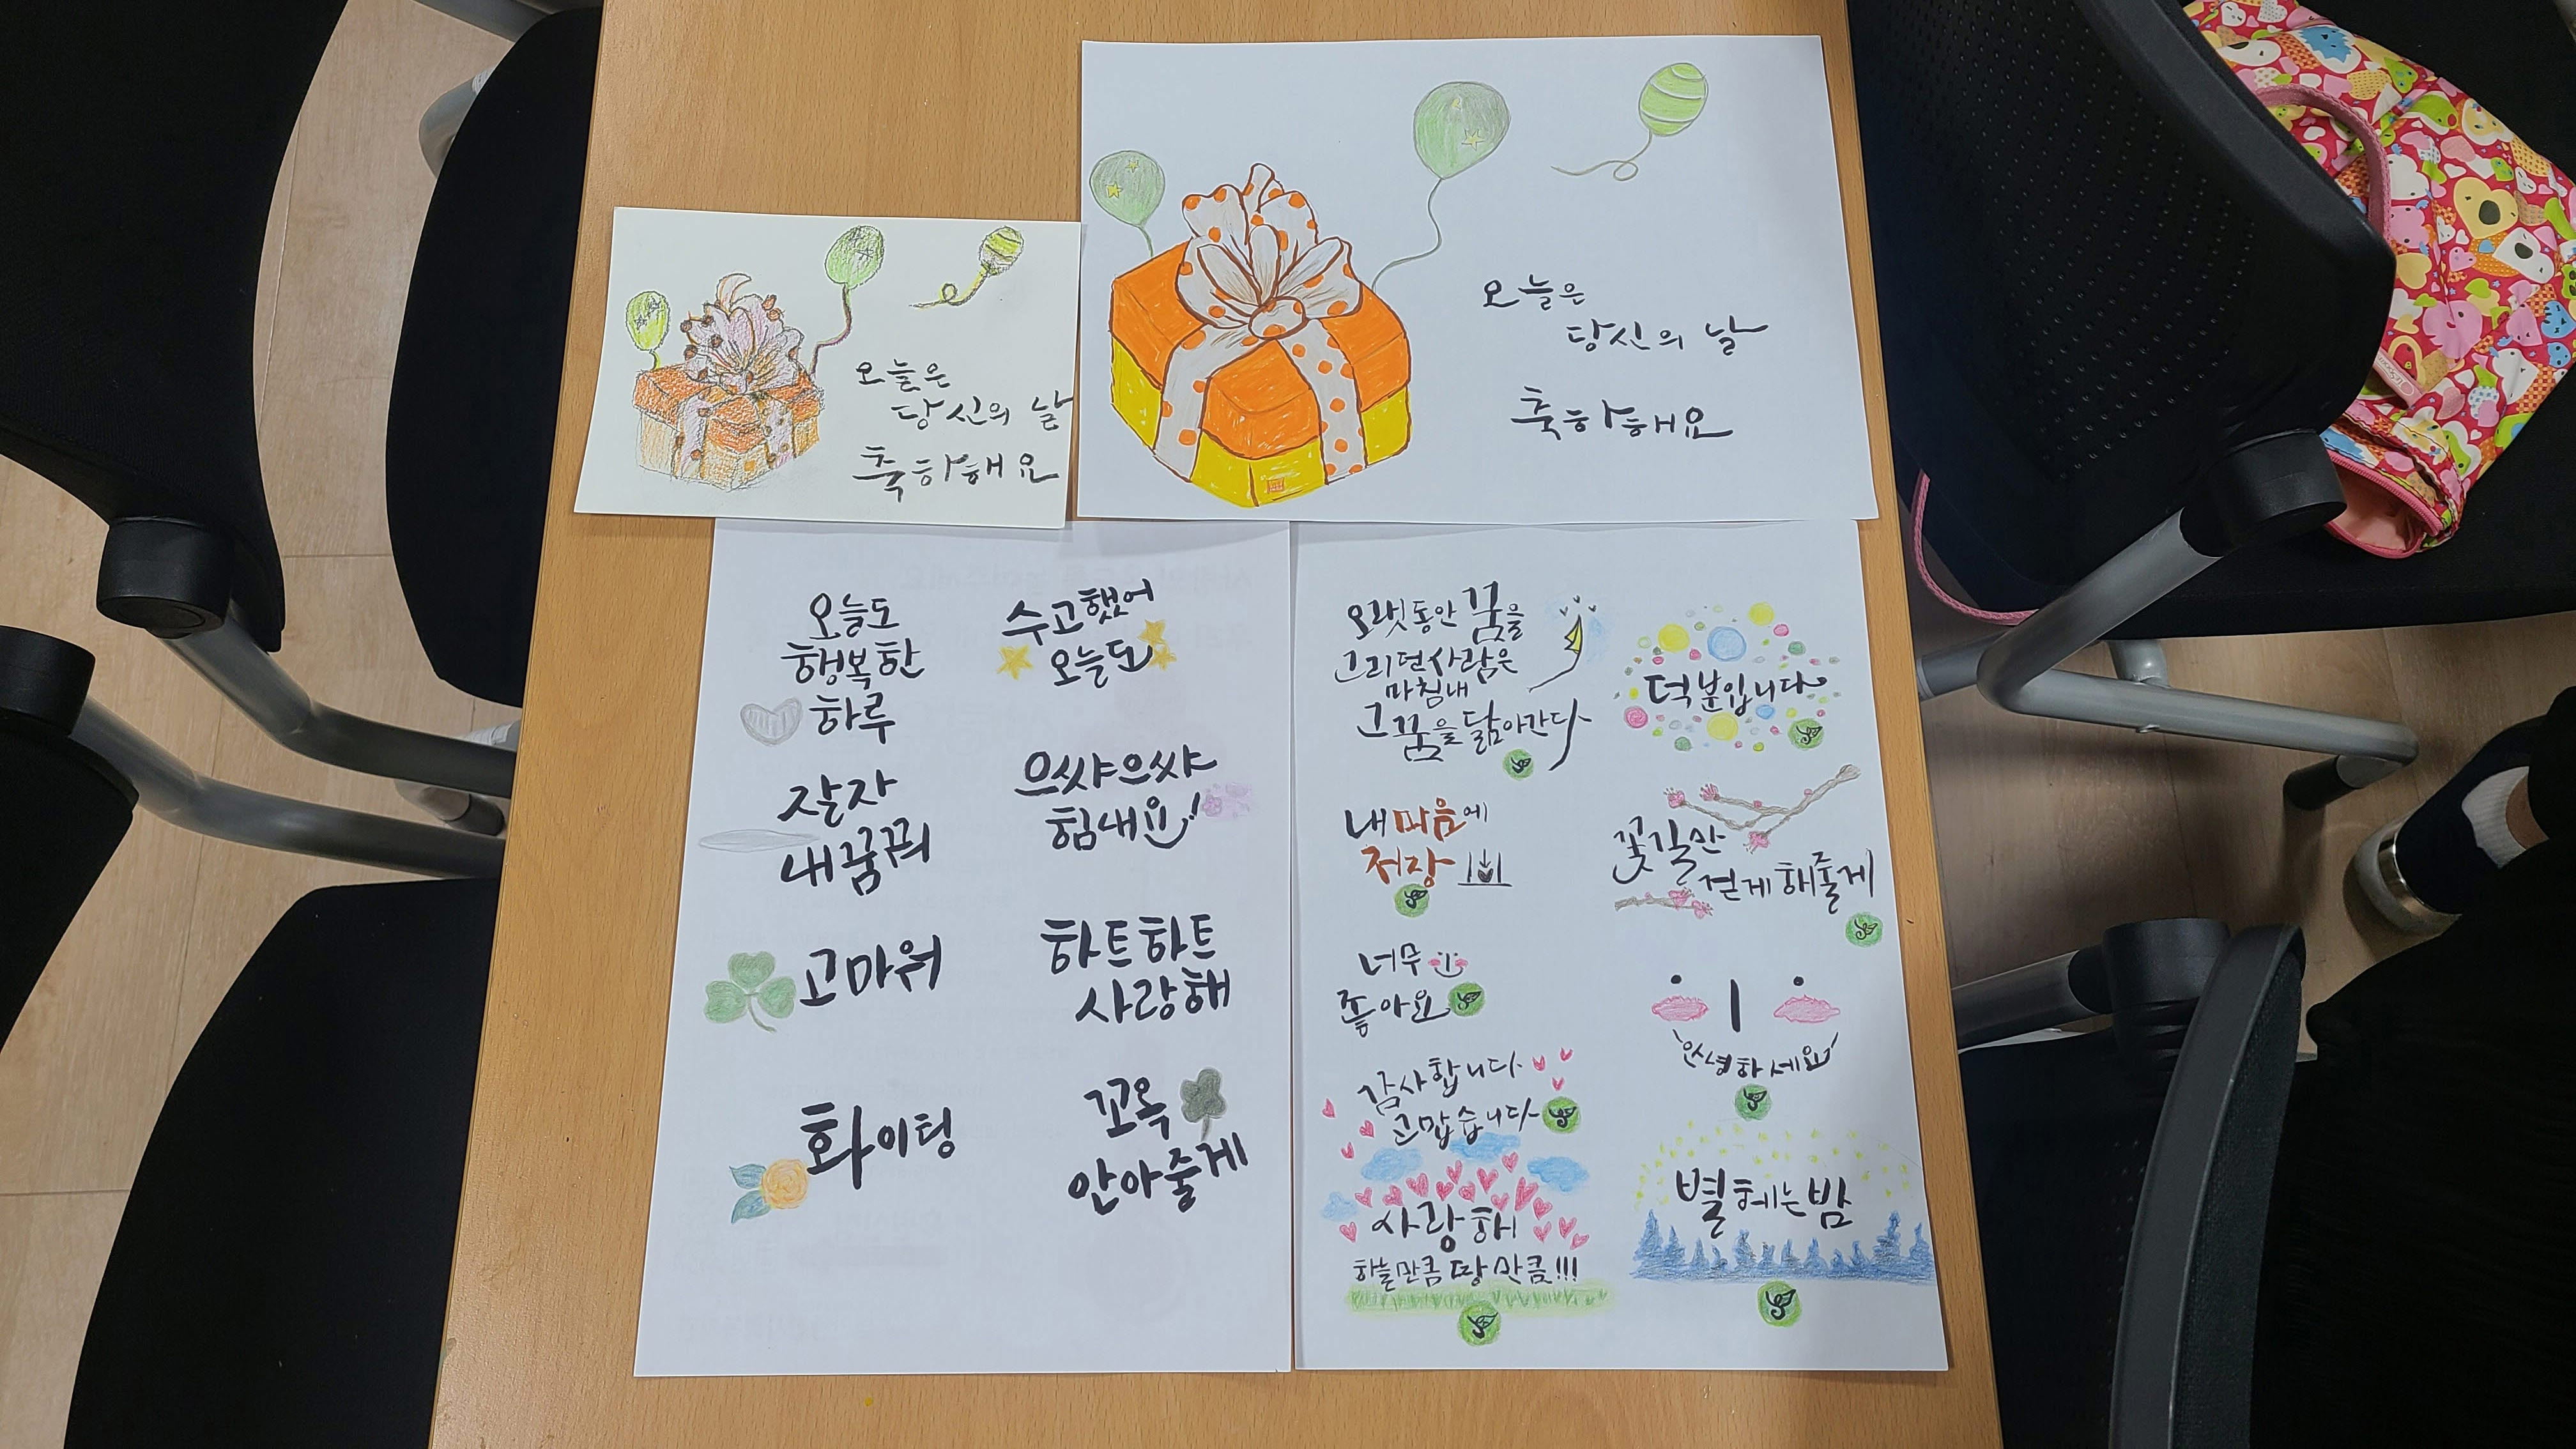 오늘은
당신의 날
축하해요
오늘은
당신의 날
축하해요
오늘도
행복한
하루
잘자
내꿈꿔
고마워
화이팅
수고했어
오늘도
으쌰으쌰
힘내요!
하트하트
사랑해
꼬옥
안아줄게
오랫동안 꿈을
그리던 사람은
마침내
그 꿈을 닮아간다
내 마음에
저장
너무
좋아요
감사합니다
고맙습니다
사랑해
하늘만큼 땅만큼!!!
덕분입니다
꽃길만
걷게 해줄게
안녕하세요
별 헤는 밤